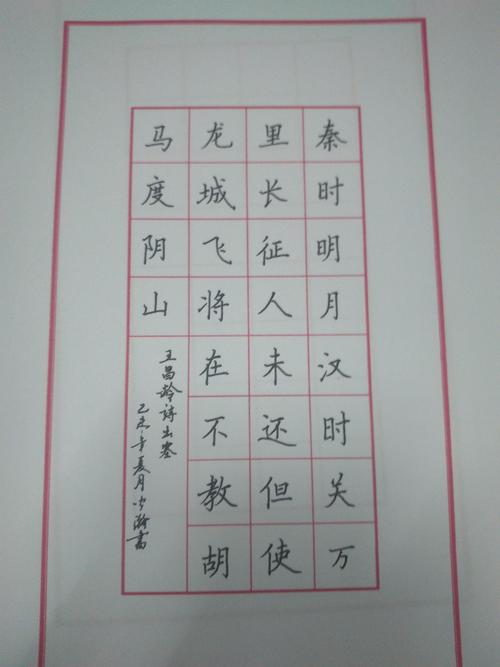 秦时明月汉时关万
里长征人未还但使
龙城飞将在不教胡
马度阴山
王昌龄诗出塞
乙未年夏月少游书